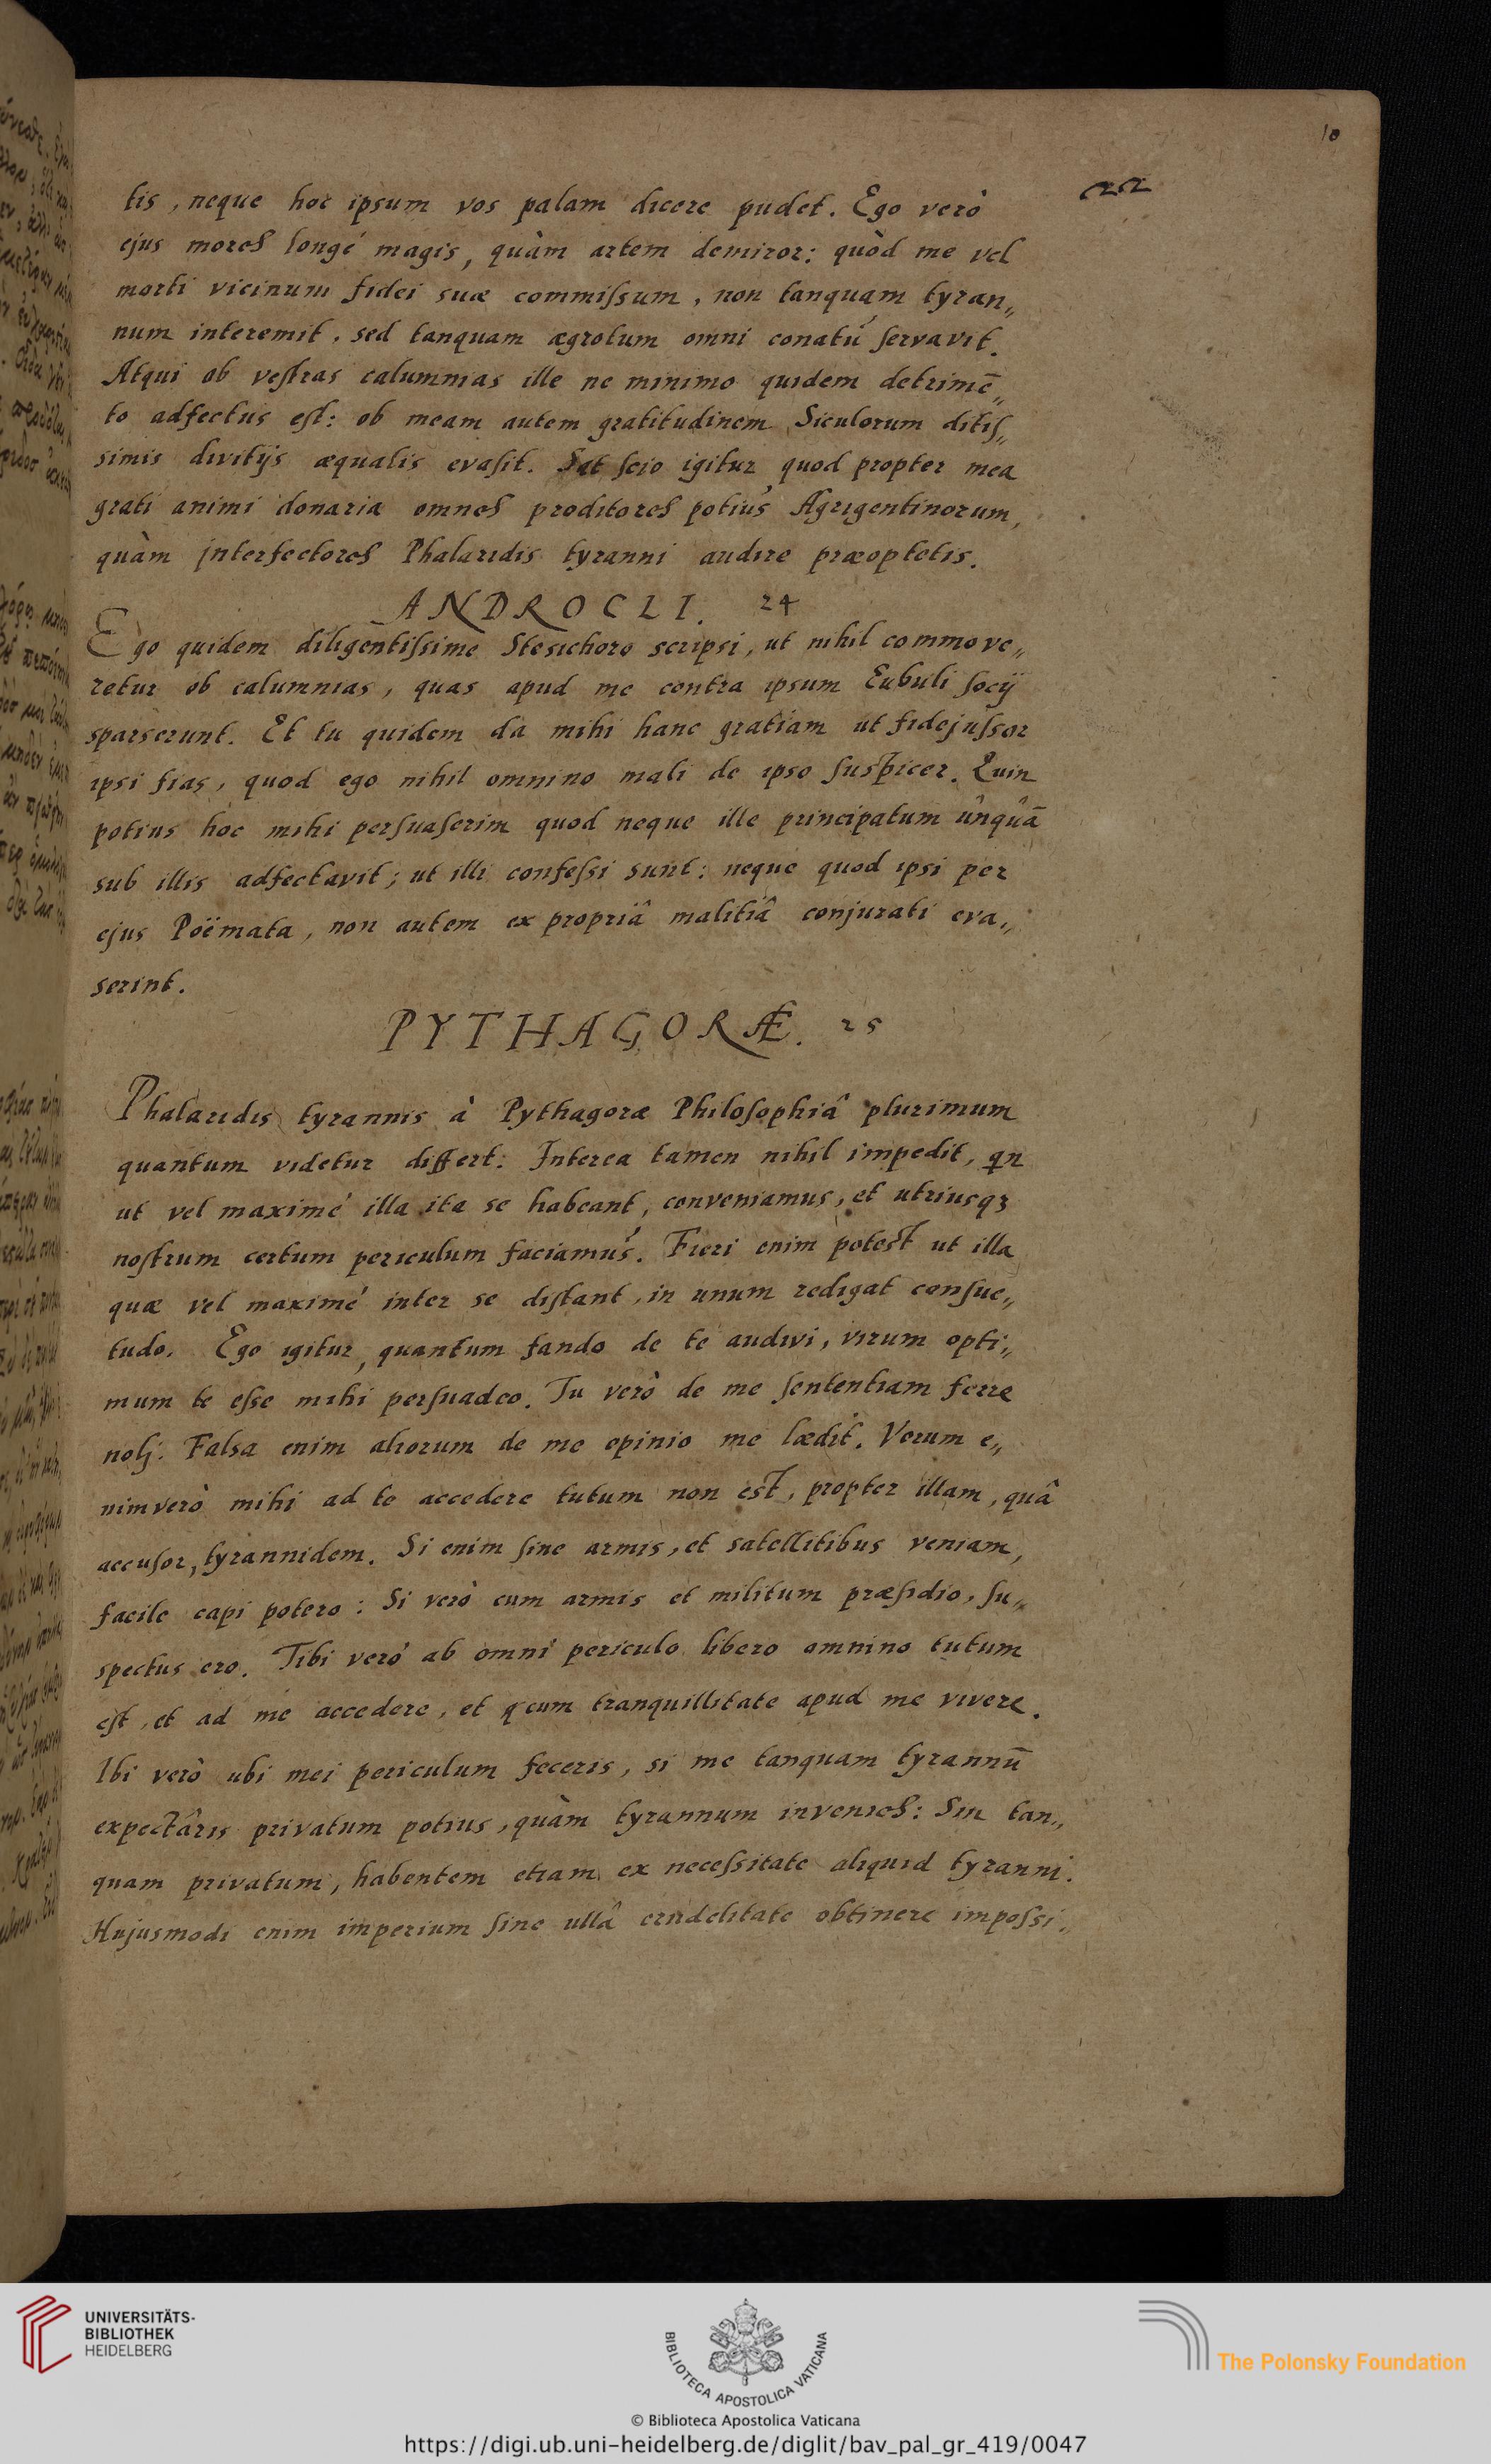 10
22
tis, neque hoc ipsum vos palam dicere pudet. Ego verò
ejus mores longé magis, quàm artem demiror: quòd me vel
morti vicinum fidei suæ commiſsum, non tanquam tyran„
num interemit, sed tanquam ægrotum omni conatú ſervavit.
Atqui ob veſtras calumnias ille ne minimo quidem detrimē„
to adfectus eſt: ob meam autem gratitudinem Siculorum ditiſ„
simis divitijs æqualis evaſit. Sat ſcio igitur quod propter mea
grati animi donaria omnes proditores potiús Agrigentinorum,
quàm jnterfectores Phalaridis tyranni audire præoptetis.
ANDROCLI. 24
Ego quidem diligentiſsime Stesichoro scripsi, ut nihil commove„
retur ob calumnias, quas apud me contra ipsum Eubuli ſocij
sparserunt. Et tu quidem da mihi hanc gratiam ut fidejuſsor
ipsi fias, quod ego nihil omnino mali de ipso ſuspicer. Quin
potius hoc mihi perſuaſerim quod neque ille principatum ûnquâ̄
sub illis adfectavit; ut illi confeſsi sunt: neque quod ipsi per
ejus Poëmata, non autem ex propriâ malitiâ conjurati eva„
serint.
PYTHAGORÆ. 25
Phalaridis tyrannis à Pythagoræ Philoſophiâ plurimum
quantum videtur differt: Interea tamen nihil impedit,
ut vel maximé illa ita se habeant, conveniamus, et utriusqꝫ
noſtrum certum periculum faciamús. Fieri enim potest ut illa
quæ vel maximé inter se diſtant, in unum redigat conſue„
tudo. Ego igitur, quantum fando de te audivi, virum opti„
mum te eſse mihi perſuadeo. Tu verò de me ſententiam ferre
nolj: Falsa enim aliorum de me opinio me lædit. Verum e„
nimverò mihi ad te accedere tutum non est, propter illam, quâ
accuſor, tyrannidem. Si enim ſine armis, et satellitibus veniam,
facile capi potero: Si verò cum armis et militum præſidio, ſu„
spectus ero. Tibi veró ab omni periculo libero omnino tutum
eſt, et ad me accedere, et cum tranquillitate apud me vivere.
Ibi verò ubi mei periculum feceris, si me tanquam tyrannū
expectâris privatum potius, quàm tyrannum invenies: Sin tan„
quam privatum, habentem etiam ex neceſsitate aliquid tyranni.
Hujusmodi enim imperium ſine ullâ crudelitate obtinere impoſsi„
UNIVERSITÄTS-
BIBLIOTHEK
HEIDELBERG
BIBLIOTECA APOSTOLICA VATICANA
The Polonsky Foundation
© Biblioteca Apostolica Vaticana
https://digi.ub.uni-heidelberg.de/diglit/bav_pal_gr_419/0047